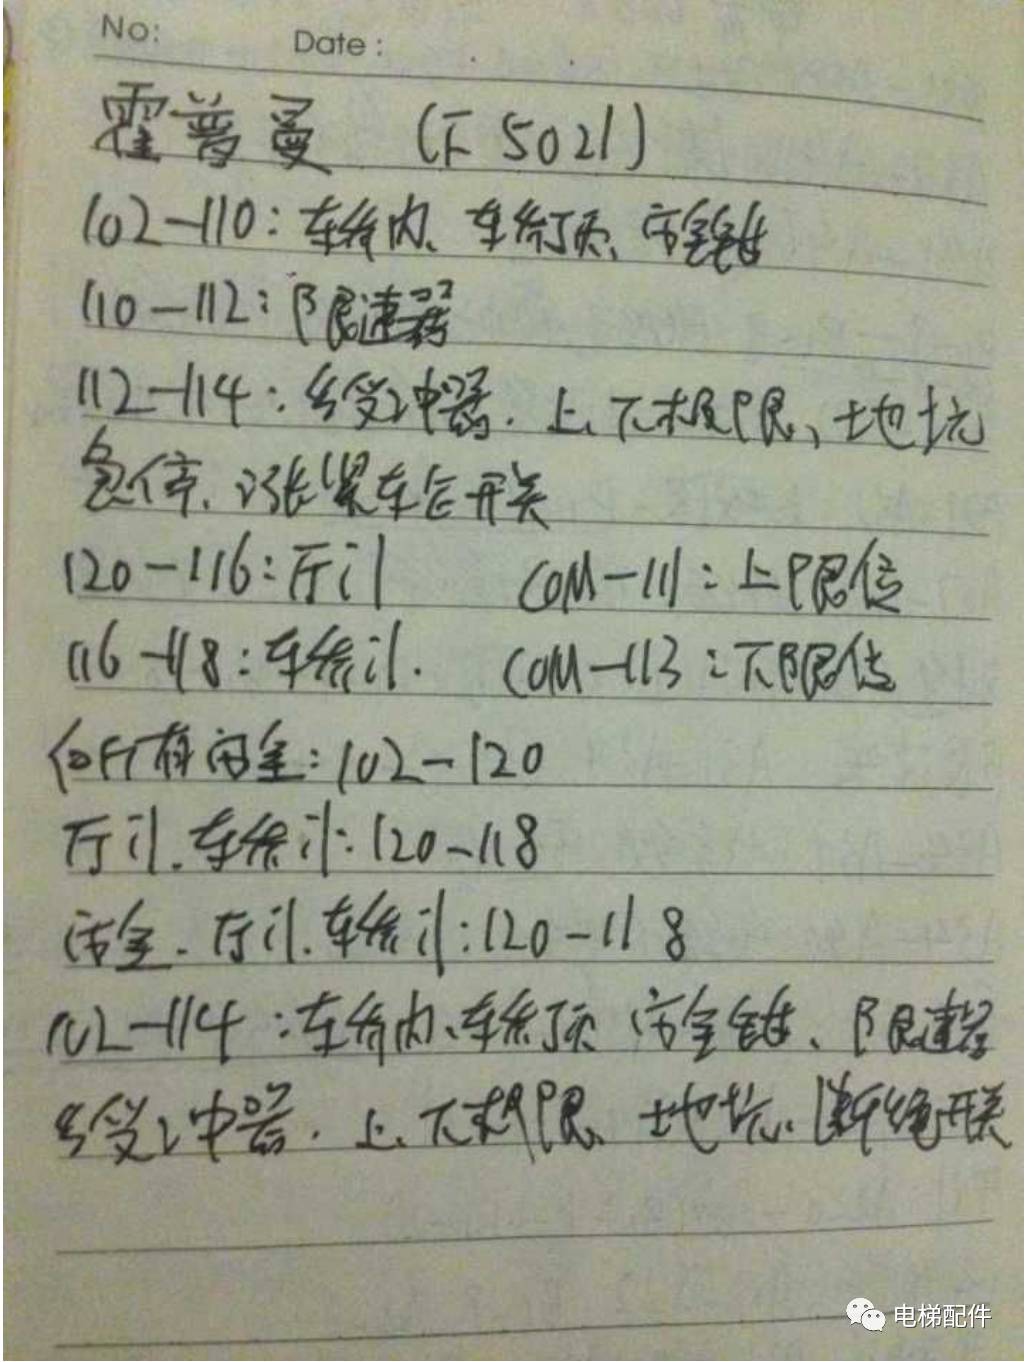 No: Date:
霍普曼 (F 5021)
102-110: 车桥内、车桥顶、安全钳
110-112: 限速器
112-114: 缓冲器. 上、下极限、地坑
急停、涨紧车仑开关
120-116: 厅门 COM-111: 上限位
116-118: 车桥门. COM-113: 下限位
所有安全: 102-120
厅门.车桥门: 120-118
安全.厅门.车桥门: 120-118
102-114: 车桥内、车桥顶 安全钳、限速器
缓冲器. 上、下极限、地坑、断绳开关
电梯配件